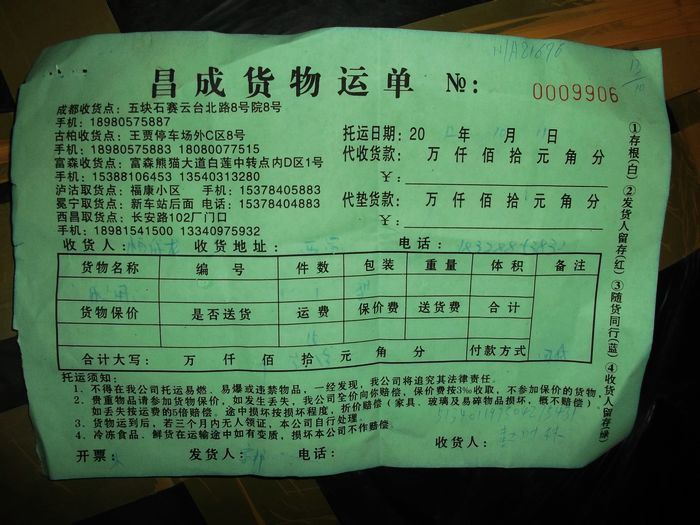 昌成货物运单 №: 0009906
成都收货点：五块石赛云台北路8号院8号
手机：18980575887
古柏收货点：王贾停车场外C区8号
手机：18980575883 18080077515
富森收货点：富森熊猫大道白莲中转点内D区1号
手机：15388106453 13540313280
泸沽取货点：福康小区 手机：15378405883
冕宁取货点：新车站后面 电话：15378404883
西昌取货点：长安路102厂门口
手机：18981541500 13340975932
托运日期：20 12 年 10 月 日
代收货款： 万 仟 佰 拾 元 角 分
￥：
代垫货款： 万 仟 佰 拾 元 角 分
￥：
收货人： 收货地址： 电话：
货物名称 编号 件数 包装 重量 体积 备注
1
货物保价 是否送货 运费 保价费 送货费 合计
合计大写： 万 仟 佰 拾 元 角 分 付款方式
托运须知：
1、不得在我公司托运易燃、易爆或违禁物品，一经发现，我公司将追究其法律责任。
2、贵重物品请参加货物保价，如发生丢失，我公司全价向你赔偿，保价费按3‰收取，不参加保价的货物，
如丢失按运费的5倍赔偿。途中损坏按损坏程度，折价赔偿（家具、玻璃及易碎物品损坏，概不赔偿）。
3、货物运到后，若三个月内无人领证，本公司自行处理。
4、冷冻食品、鲜货在运输途中如有变质，损坏本公司不作赔偿。
收货人：
开票： 发货人： 电话：
①存根(白) ②发货人留存(红) ③随货同行(蓝) ④收货人留存(绿)